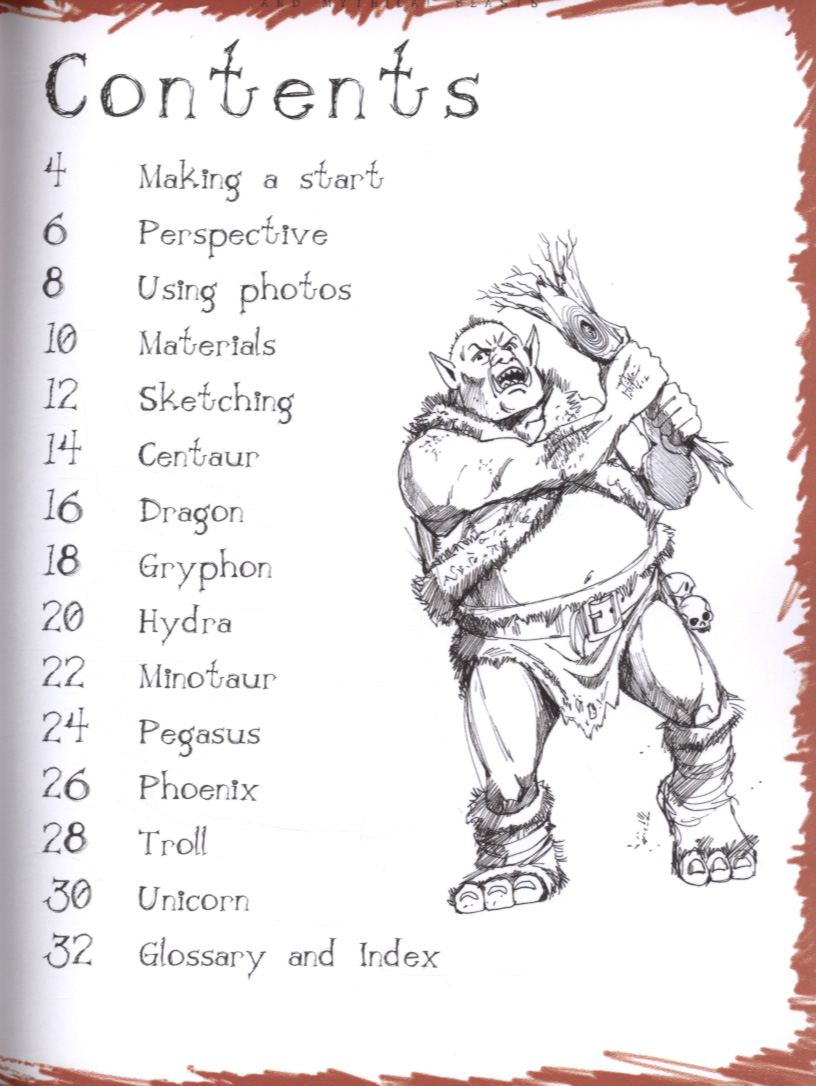 AND MYTHICAL BEASTS
Contents
4 Making a start
6 Perspective
8 Using photos
10 Materials
12 Sketching
14 Centaur
16 Dragon
18 Gryphon
20 Hydra
22 Minotaur
24 Pegasus
26 Phoenix
28 Troll
30 Unicorn
32 Glossary and Index